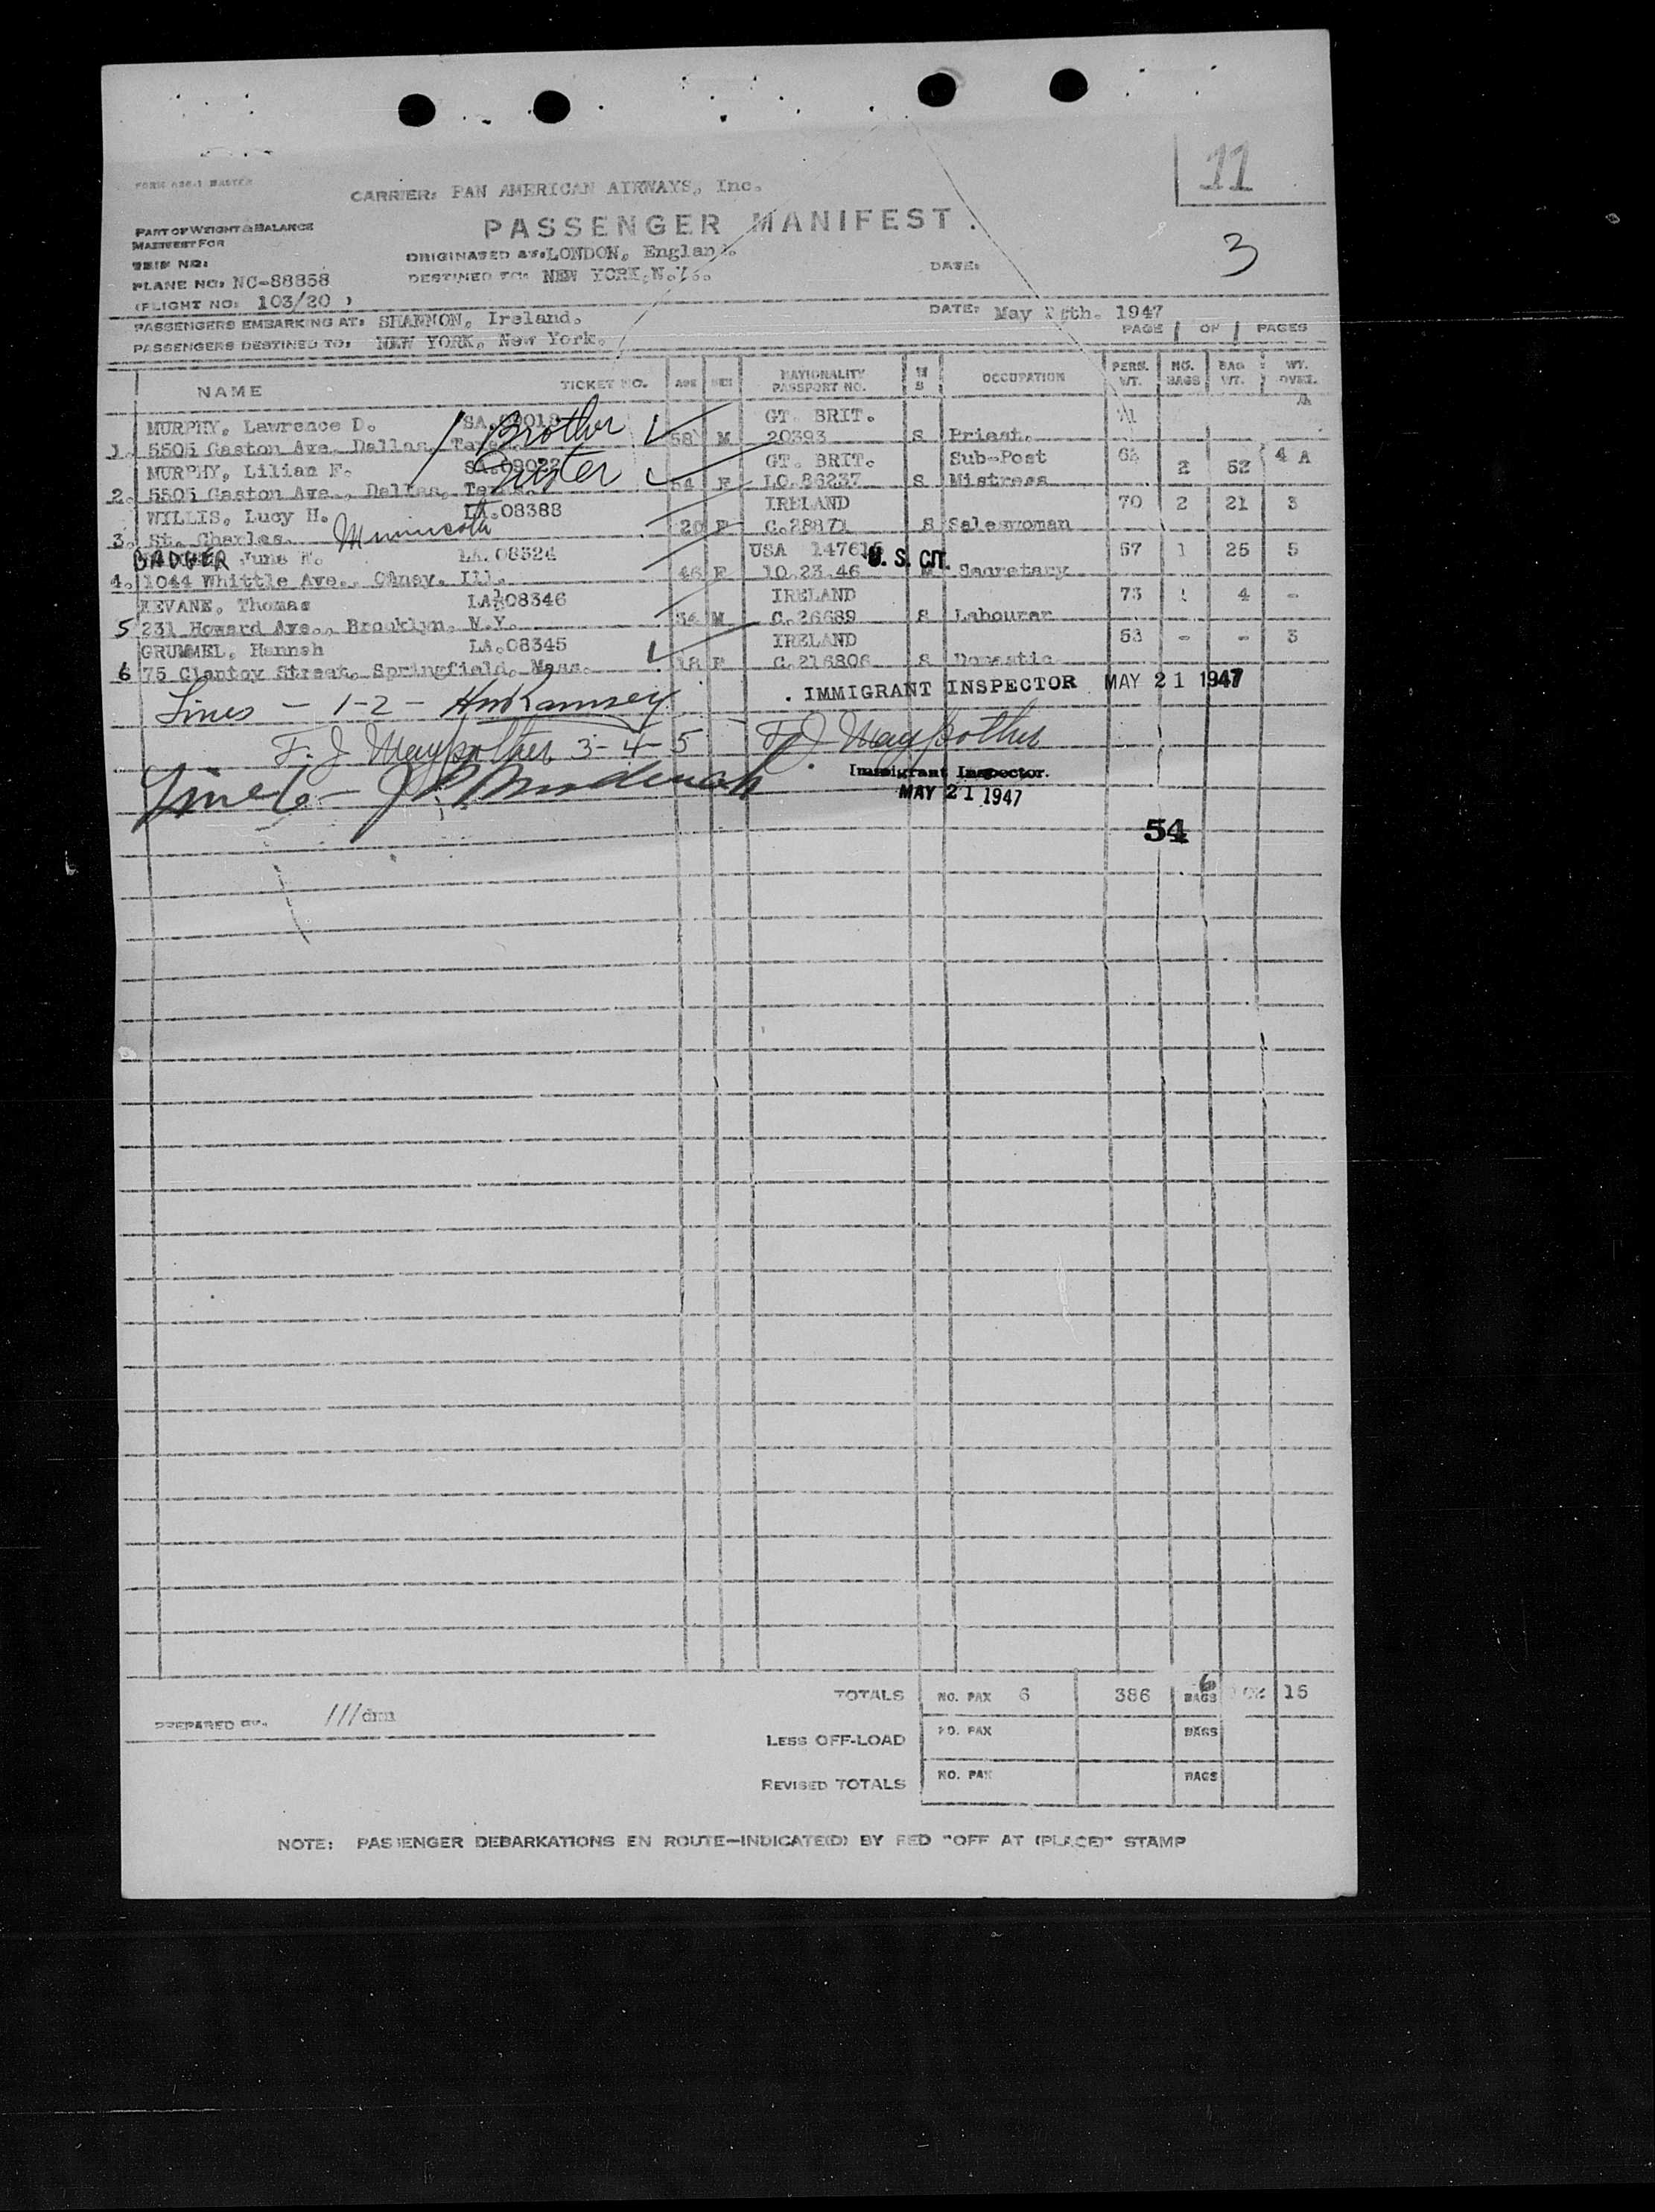 11
FORM
CARRIER: PAN AMERICAN AIRWAYS, Inc.
PASSENGER MANIFEST.
PART OF WEIGHT & BALANCE
MANIFEST FOR
TRIP NO:
ORIGINATED AT: LONDON, England.
DATE:
3
PLANE NO: NC-88858
DESTINED TO: NEW YORK, N.Y.
(FLIGHT NO: 103/20 )
PASSENGERS EMBARKING AT: SHANNON, Ireland.
DATE: May 1947
PASSENGERS DESTINED TO: NEW YORK, New York.
PAGE 1 OF 1 PAGES
NAME TICKET NO. AGE SEX NATIONALITY PASSPORT NO. M S OCCUPATION PERS. WT. NO. BAGS BAG WT. WT. OVRL.
MURPHY, Lawrence D. GT. BRIT.
1. 5505 Gaston Ave, Dallas, Brother 58 M 20393 S Priest.
MURPHY, Lilian F. SA.09022 GT. BRIT. Sub-Post 2 52 4 A
2. 5505 Gaston Ave., Dallas, Sister 54 F LO.86237 S Mistress
WILLIS, Lucy H. LA.08388 IRELAND 70 2 21 3
3. St. Charles. Minnesota 20 F C.28871 S Saleswoman
BADGER June LA.08324 USA U.S. CIT. 57 1 25 5
4. 1044 Whittle Ave., Olney, Ill. 46 F 10.23.46 M Secretary
KEVANE, Thomas LA.08346 IRELAND 73 1 4 -
5 231 Howard Ave., Brooklyn, N.Y. 34 M C.26689 S Labourer
GRUMMEL, Hannah LA.08345 IRELAND 53 - - 3
6 75 Clantoy Street, Springfield, Mass. 18 F C.216806 S Domestic
Lines - 1-2 - Ramsey
IMMIGRANT INSPECTOR MAY 21 1947
F. J. Maypother 3-4-5 F. J. Maypother
Line 6 -
Immigrant Inspector.
MAY 21 1947
54
TOTALS NO. PAX 6 386 6 BAGS 15
PREPARED BY. ///dmn
LESS OFF-LOAD NO. PAX BAGS
REVISED TOTALS NO. PAX BAGS
NOTE: PASSENGER DEBARKATIONS EN ROUTE-INDICATE(D) BY RED "OFF AT (PLACE)" STAMP